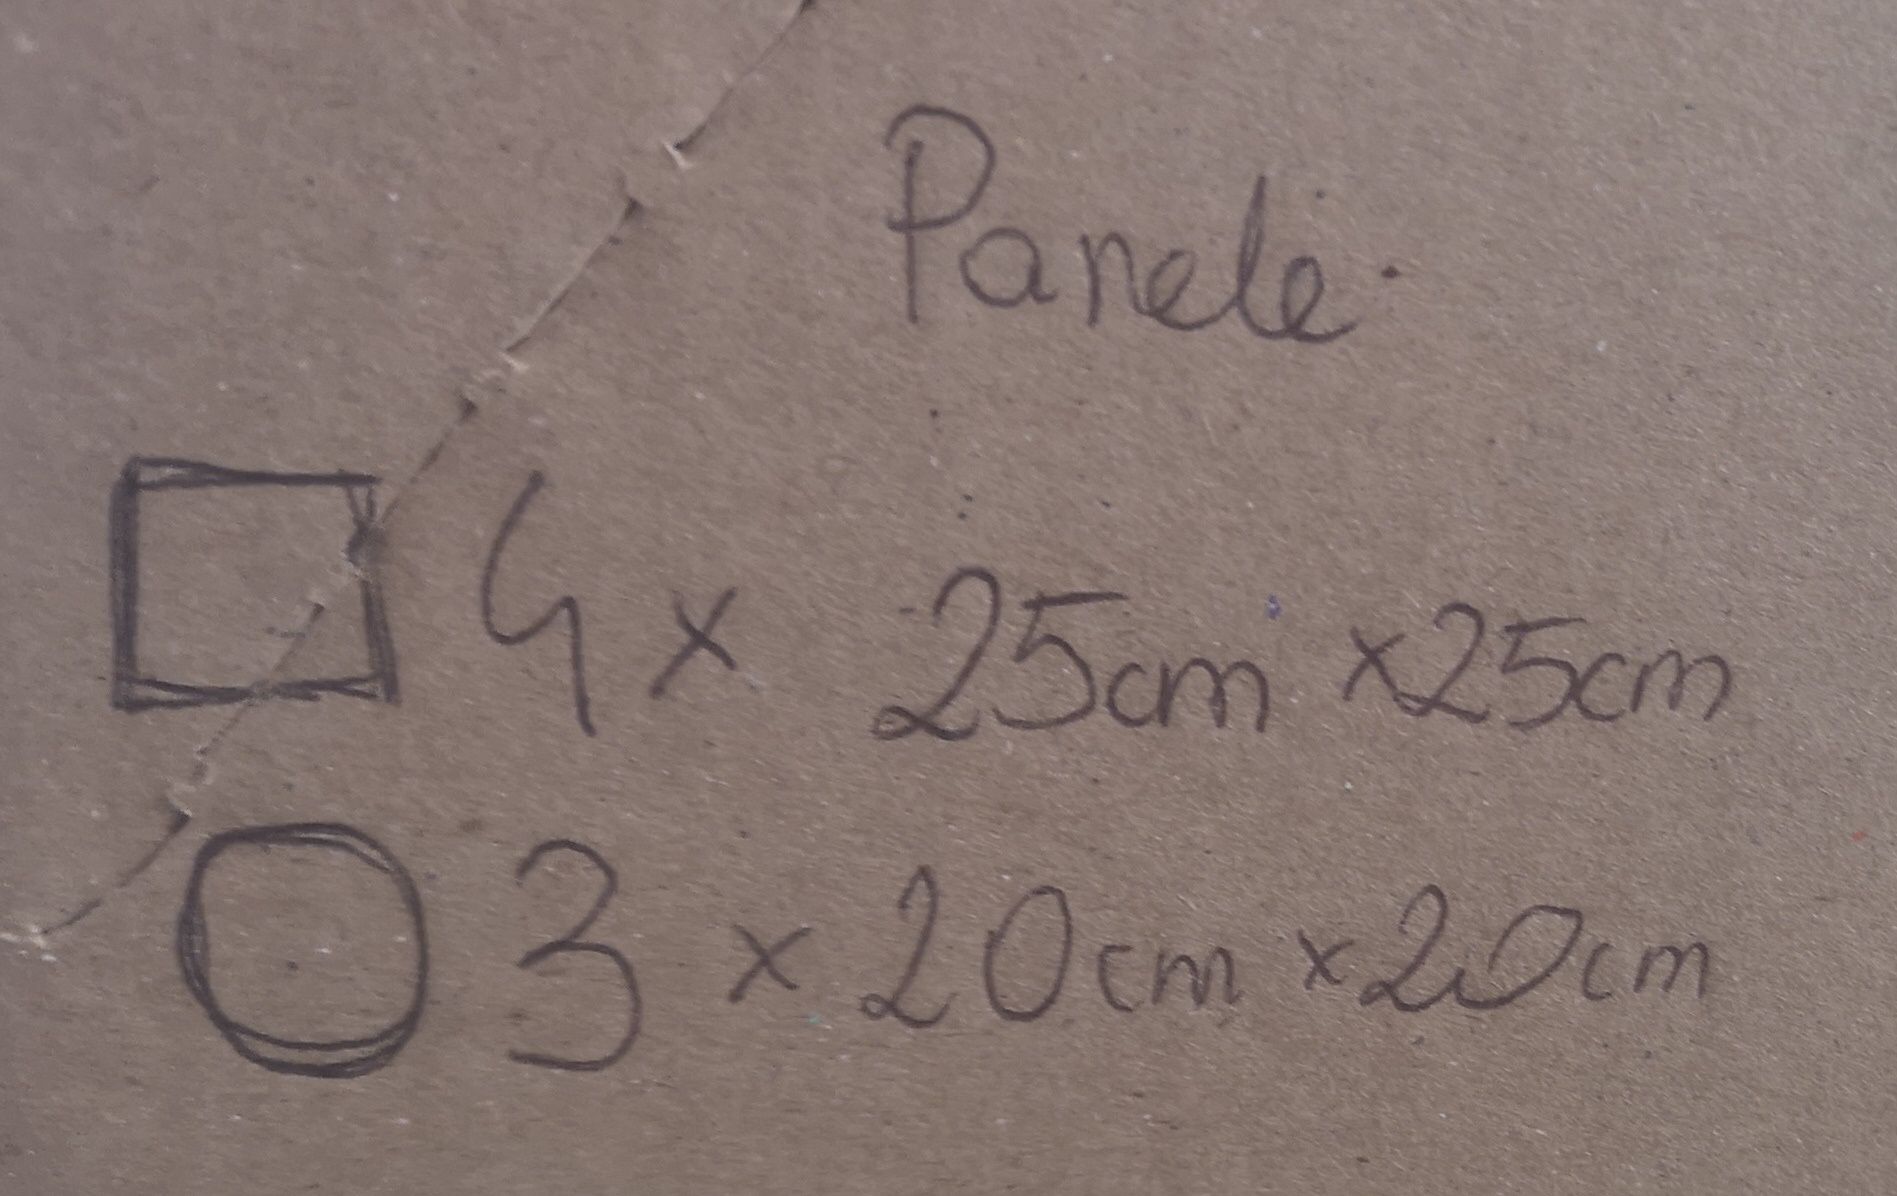 Panele
4 x 25cm x 25cm
3 x 20cm x 20cm